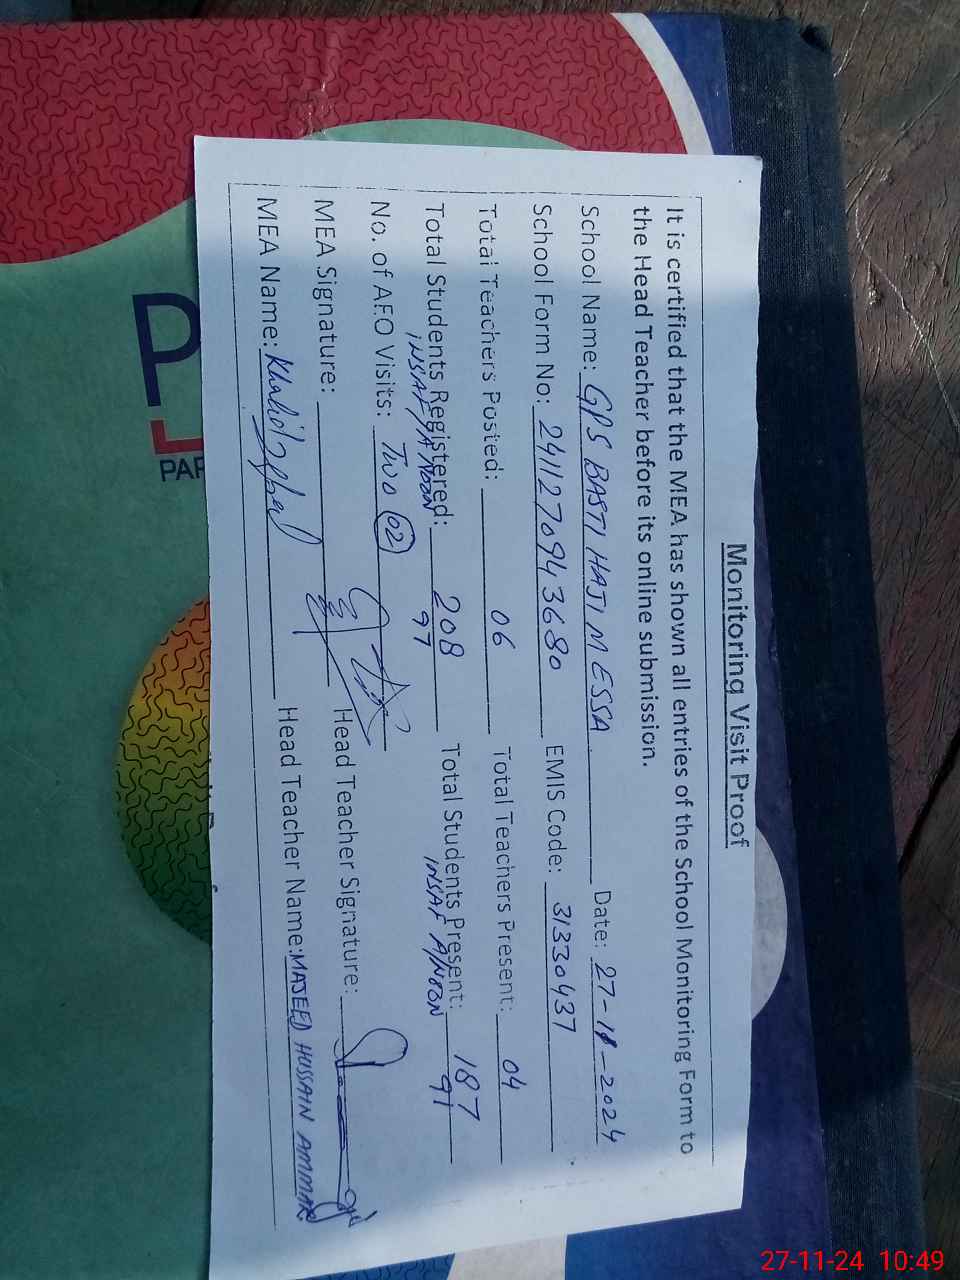 Monitoring Visit Proof
It is certified that the MEA has shown all entries of the School Monitoring Form to
the Head Teacher before its online submission.
School Name: GPS BASTI HAJI M ESSA Date: 27-11-2024
School Form No: 2411270943680 EMIS Code: 31330437
Total Teachers Posted: 06 Total Teachers Present: 04
Total Students Registered: 208 Total Students Present: 187
INSAF A/NOON 97 INSAF A/NOON 91
No. of AEO Visits: Two 02
MEA Signature: Head Teacher Signature:
MEA Name: Khalid Iqbal Head Teacher Name: MAJEED HUSSAIN AMMAR
P
PAR
27-11-24 10:49